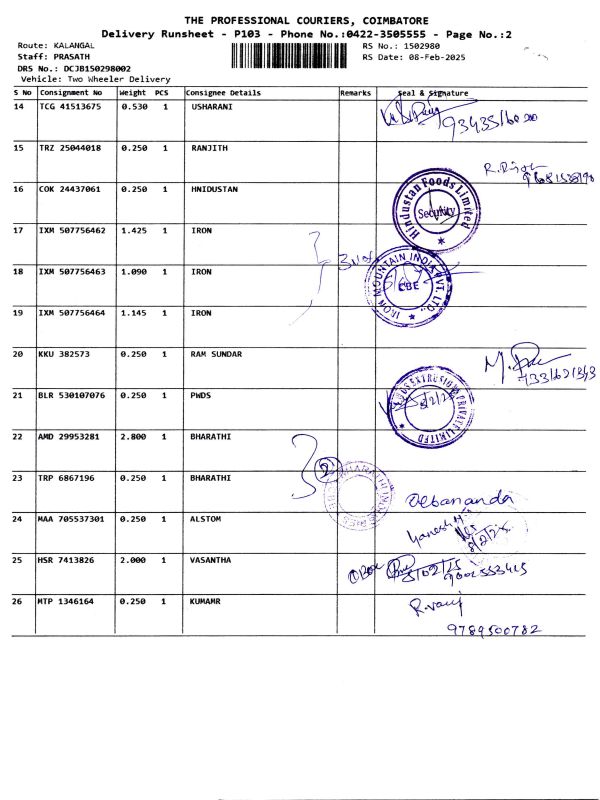 THE PROFESSIONAL COURIERS, COIMBATORE
Delivery Runsheet - P103 - Phone No.:0422-3505555 - Page No.:2
Route: KALANGAL RS No.: 1502980
Staff: PRASATH RS Date: 08-Feb-2025
DRS No.: DCJB150298002
Vehicle: Two Wheeler Delivery
S No Consignment No Weight PCS Consignee Details Remarks Seal & Signature
14 TCG 41513675 0.530 1 USHARANI
15 TRZ 25044018 0.250 1 RANJITH
16 COK 24437061 0.250 1 HNIDUSTAN
Hindustan Foods Limited
Security
17 IXM 507756462 1.425 1 IRON
18 IXM 507756463 1.090 1 IRON
IRON MOUNTAIN INDIA PVT. LTD.,
CBE
19 IXM 507756464 1.145 1 IRON
20 KKU 382573 0.250 1 RAM SUNDAR
21 BLR 530107076 0.250 1 PWDS
22 AMD 29953281 2.800 1 BHARATHI
2
23 TRP 6867196 0.250 1 BHARATHI
Debananda
24 MAA 705537301 0.250 1 ALSTOM
Ganesh
8/2/25
25 HSR 7413826 2.000 1 VASANTHA
8/02/25
26 MTP 1346164 0.250 1 KUMAMR
9789500782